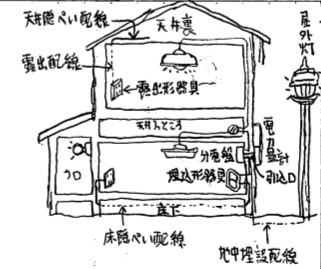 天井隠ぺい配線
天井裏
屋外灯
露出配線
露出形器具
天井ふところ
電力量計
分電盤
埋込形器具
引込口
床下
床隠ぺい配線
地中埋設配線